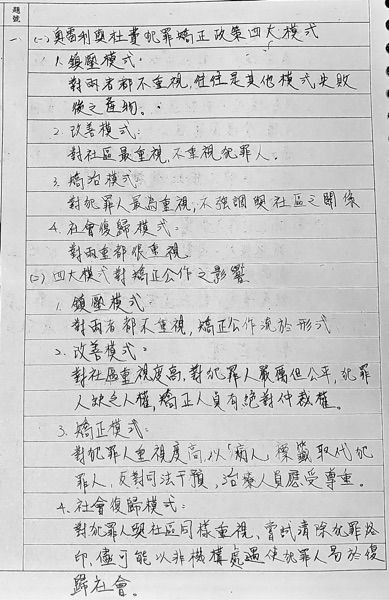 題號
一 (一)奧雷利與杜費犯罪矯正政策四大模式
1. 鎮壓模式:
對兩者都不重視,往往是其他模式失敗
後之產物。
2. 改善模式:
對社區最重視,不重視犯罪人。
3. 矯治模式:
對犯罪人最為重視,不強調與社區之關係
4. 社會復歸模式:
對兩重都很重視
(二)四大模式對矯正工作之影響
1. 鎮壓模式:
對兩者都不重視,矯正工作流於形式
2. 改善模式:
對社區重視度高,對犯罪人嚴厲但公平,犯罪
人缺乏人權,矯正人員有絕對仲裁權。
3. 矯正模式:
對犯罪人重視度高,以「病人」標籤取代犯
罪人,反對司法干預,治療人員應受尊重。
4. 社會復歸模式:
對犯罪人與社區同樣重視,嘗試清除犯罪烙
印,儘可能以非機構處遇使犯罪人易於復
歸社會。